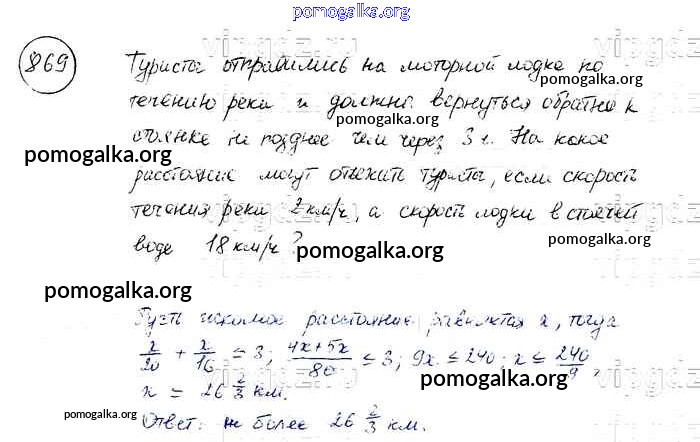 pomogalka.org
869
Туристы отправились на моторной лодке по
pomogalka.org
течению реки и должны вернуться обратно к
pomogalka.org
стоянке не позднее чем через 3 ч. На какое
pomogalka.org
расстояние могут отъехать туристы, если скорость
течения реки 2 км/ч, а скорость лодки в стоячей
pomogalka.org
воде 18 км/ч?
pomogalka.org
pomogalka.org
pomogalka.org
Пусть искомое расстояние равняется x, тогда
x/20 + x/16 ≤ 3; (4x+5x)/80 ≤ 3; 9x ≤ 240; x ≤ 240/9,
pomogalka.org
x = 26 2/3 км.
pomogalka.org
Ответ: не более 26 2/3 км.